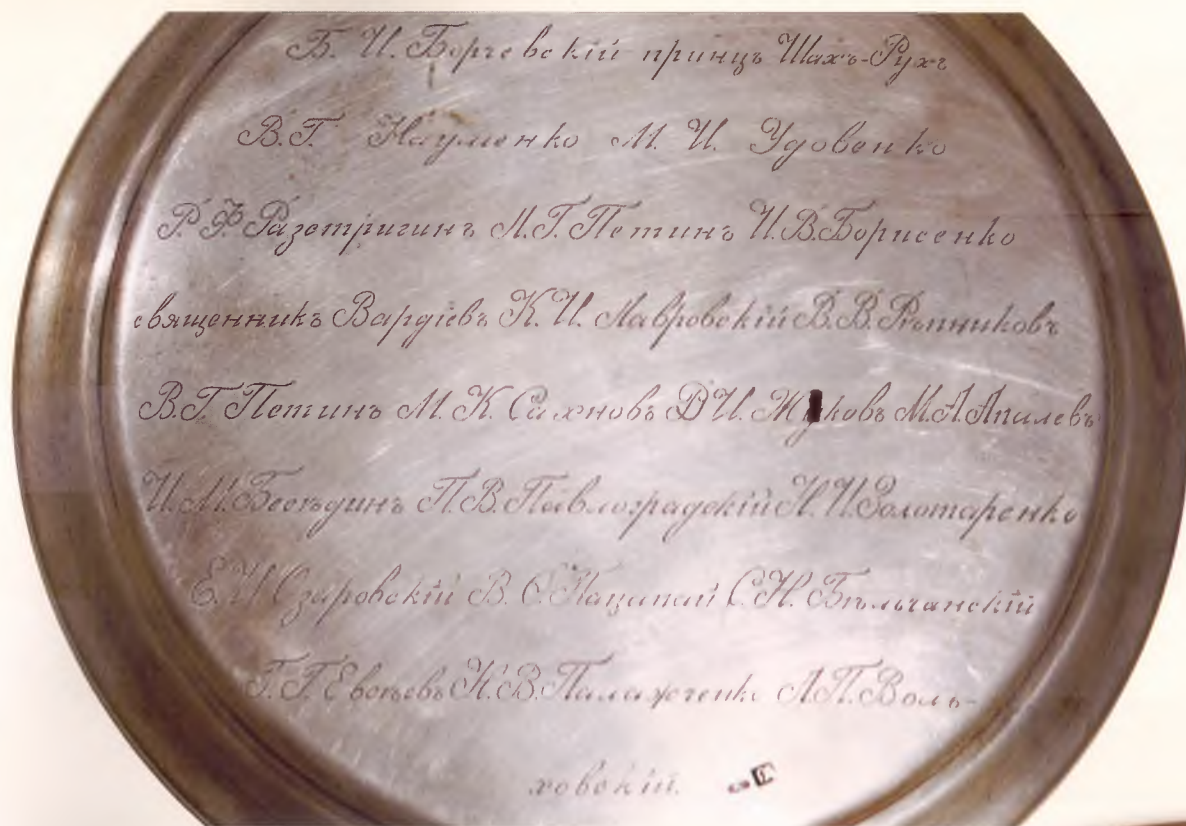 Б. И. Борчевскій принцъ Шахъ-Рухъ
В. Г. Науменко М. И. Удовенко
Р. Ф. Разстригинъ М. Г. Петинъ И. В. Борисенко
священникъ Вардіевъ К. И. Лавровскій В. В. Рѣпниковъ
В. Г. Петинъ М. К. Сахновъ В И. Жуковъ М. А. Апилевъ
И. М. Бесѣдинъ П. В. Павлоградскій И. И. Золотаренко
Е. И Озаровскій В. С. С. Н. Бѣльчанскій
Г. Г. Евсѣевъ Н. В. Палажченко А. П. Воль-
ховскій.